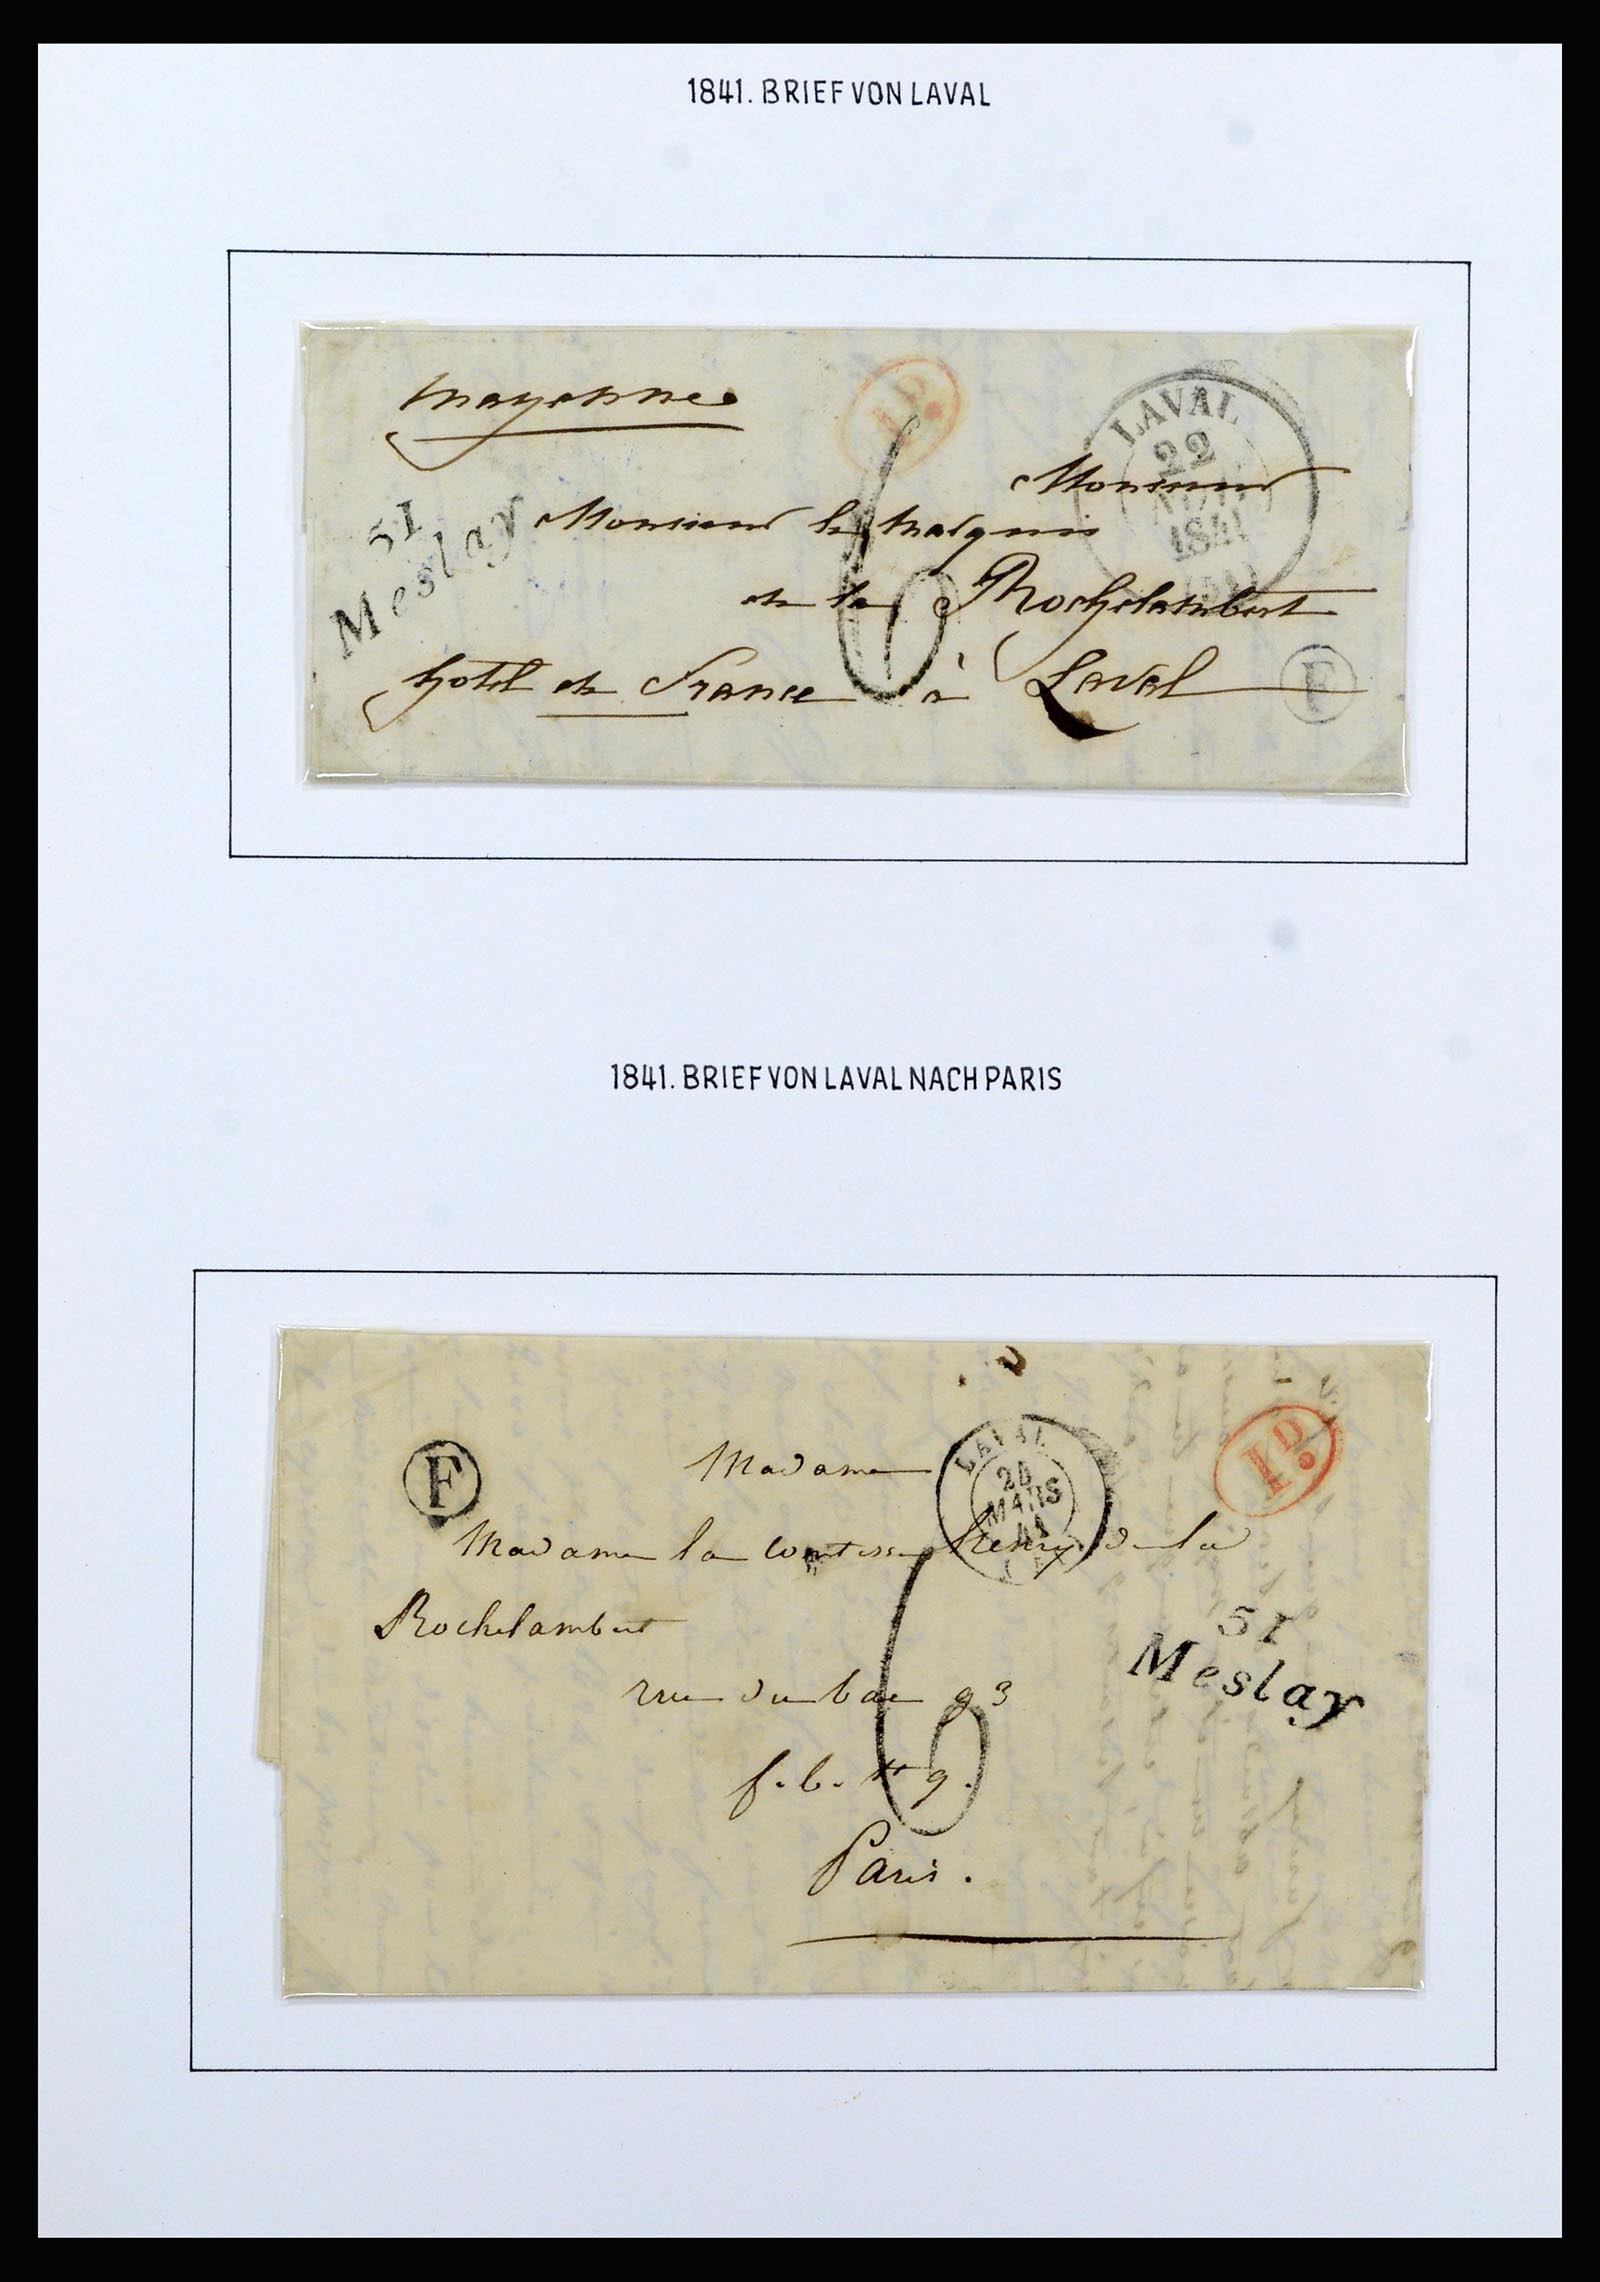 1841. BRIEF VON LAVAL
Mayenne
1 D.
LAVAL
22
1841
(51)
51
Meslay
Monsieur
Monsieur le Marquis
de la Rochelambert
hotel de France à Laval
F
1841. BRIEF VON LAVAL NACH PARIS
F
Madame
LAVAL
24
MARS
41
1 D.
Madame la comtesse henry de la
Rochelambert
51
Meslay
rue du bac 93
f. b. St g.
Paris.
6